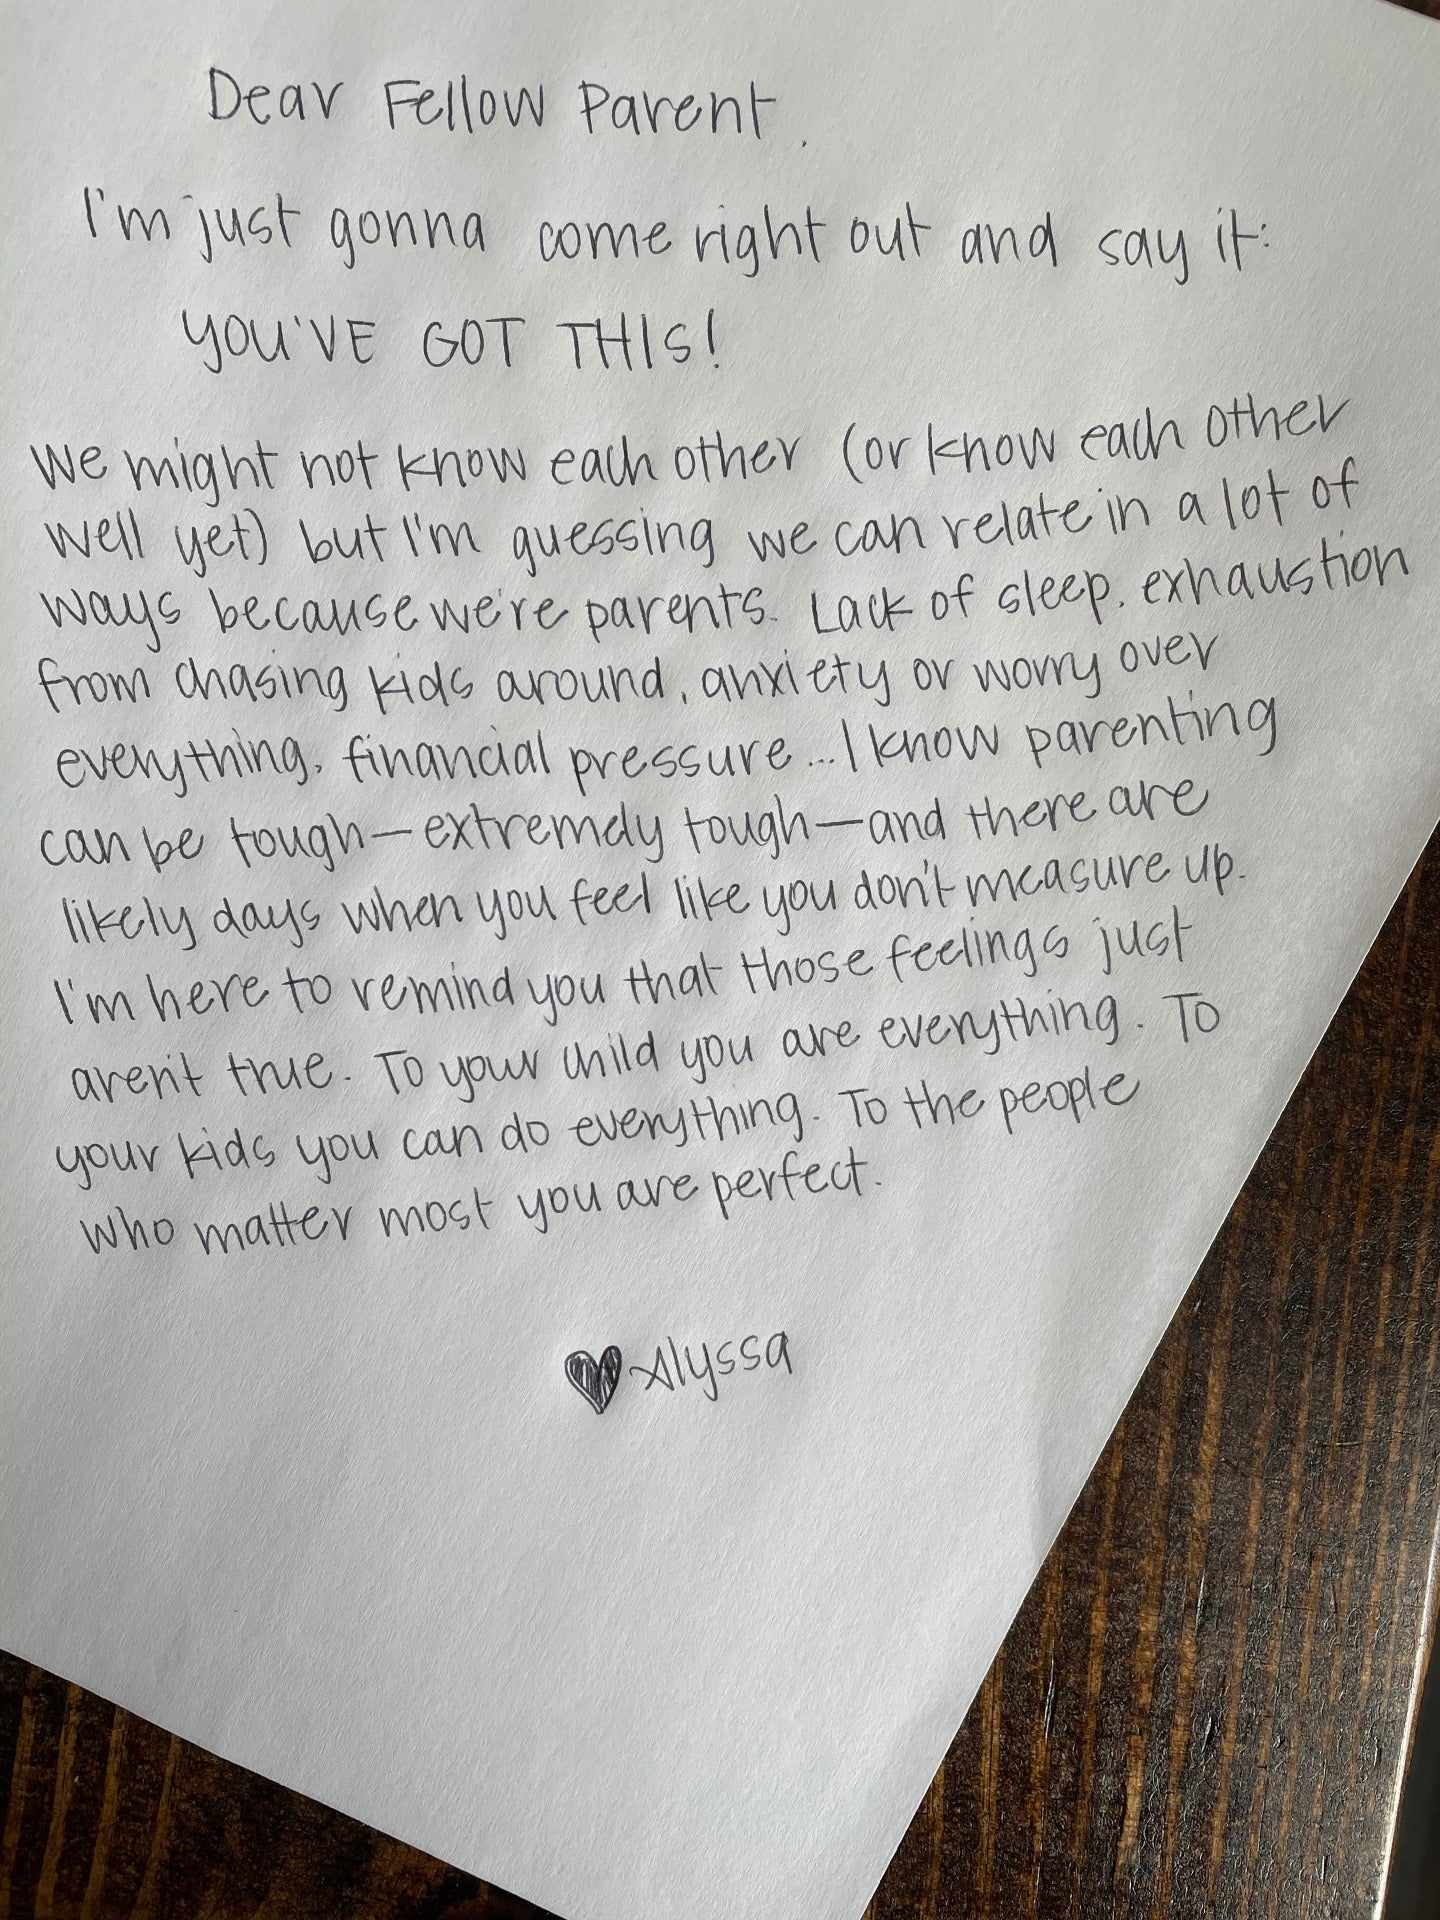 Dear Fellow Parent,
I'm just gonna come right out and say it:
YOU'VE GOT THIS!
We might not know each other (or know each other
well yet) but I'm guessing we can relate in a lot of
ways because we're parents. Lack of sleep, exhaustion
from chasing kids around, anxiety or worry over
everything, financial pressure...I know parenting
can be tough—extremely tough—and there are
likely days when you feel like you don't measure up.
I'm here to remind you that those feelings just
aren't true. To your child you are everything. To
your kids you can do everything. To the people
who matter most you are perfect.
♥Alyssa